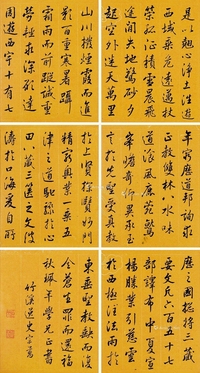 是以翹心淨土法遊
西域乘危遠邁杖
策孤征積雪晨飛
途間失地驚砂夕
起空外迷天萬里
山川撥煙霞而進
影百重寒暑躡
霜雨而前誠重
勞輕求深願達
周遊西宇十有七
年窮歷道邦詢求
正教雙林八水味
道湌風鹿苑鷲
峯瞻奇仰異承至言
於先聖受真教
於上賢探賾妙門
精窮奧業一乘五
律之道馳驟於心
田八藏三篋之文波
濤於口海爰自所
歷之國總將三藏
要文凡六百五十七
部譯布中夏宣
揚勝業引慈雲
於西極注法雨於
東垂聖教缺而復
全蒼生罪而還福
秋珮年學兄正書
竹溪逸史